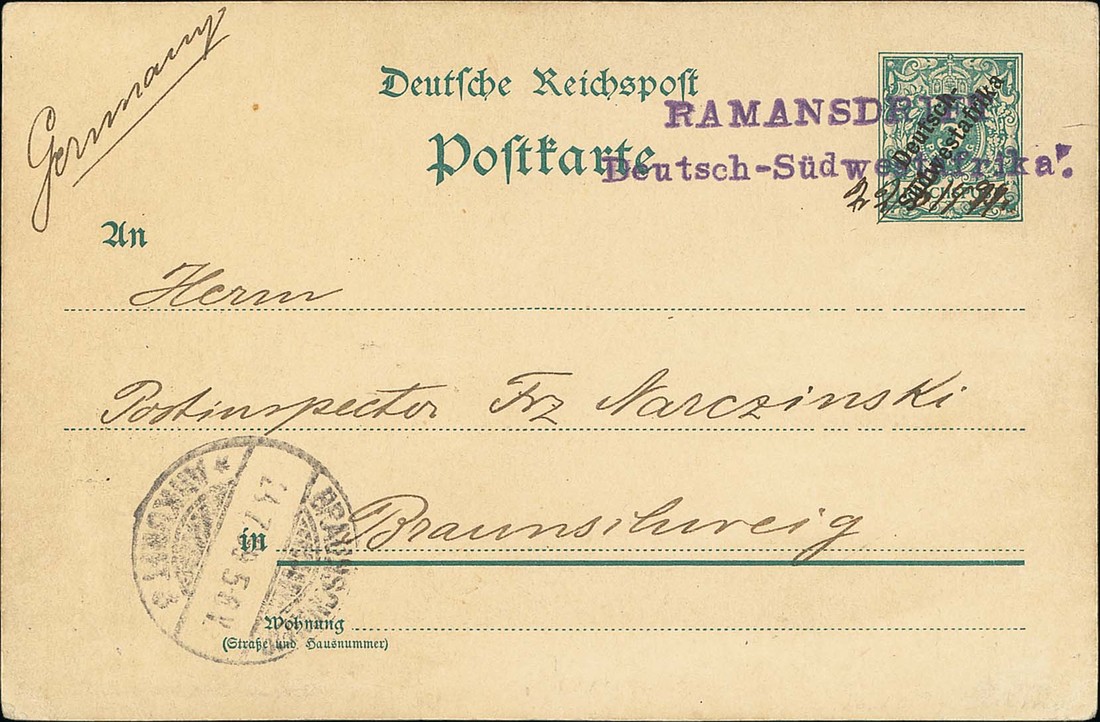 Germany
Deutsche Reichspost
Postkarte
RAMANSDRIFT
Deutsch-Südwestafrika.
Deutsch-
Südwestafrika
An
Herrn
Postinspector Frz Narczinski
in Braunschweig
BRAUNSCHWEIG
* ANKUNFT
14.7. 5-6V.
Wohnung
(Straße und Hausnummer)